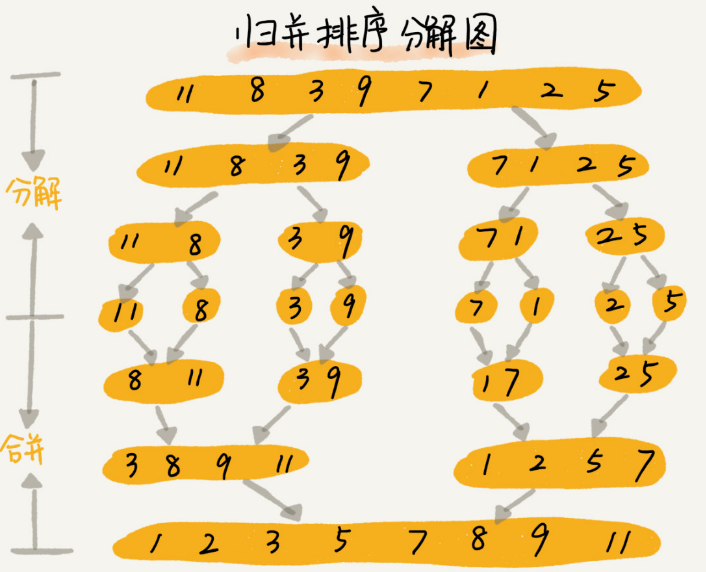 归并排序分解图
11 8 3 9 7 1 2 5
11 8 3 9 7 1 2 5
分解
11 8 3 9 7 1 2 5
11 8 3 9 7 1 2 5
8 11 3 9 1 7 2 5
合并
3 8 9 11 1 2 5 7
1 2 3 5 7 8 9 11